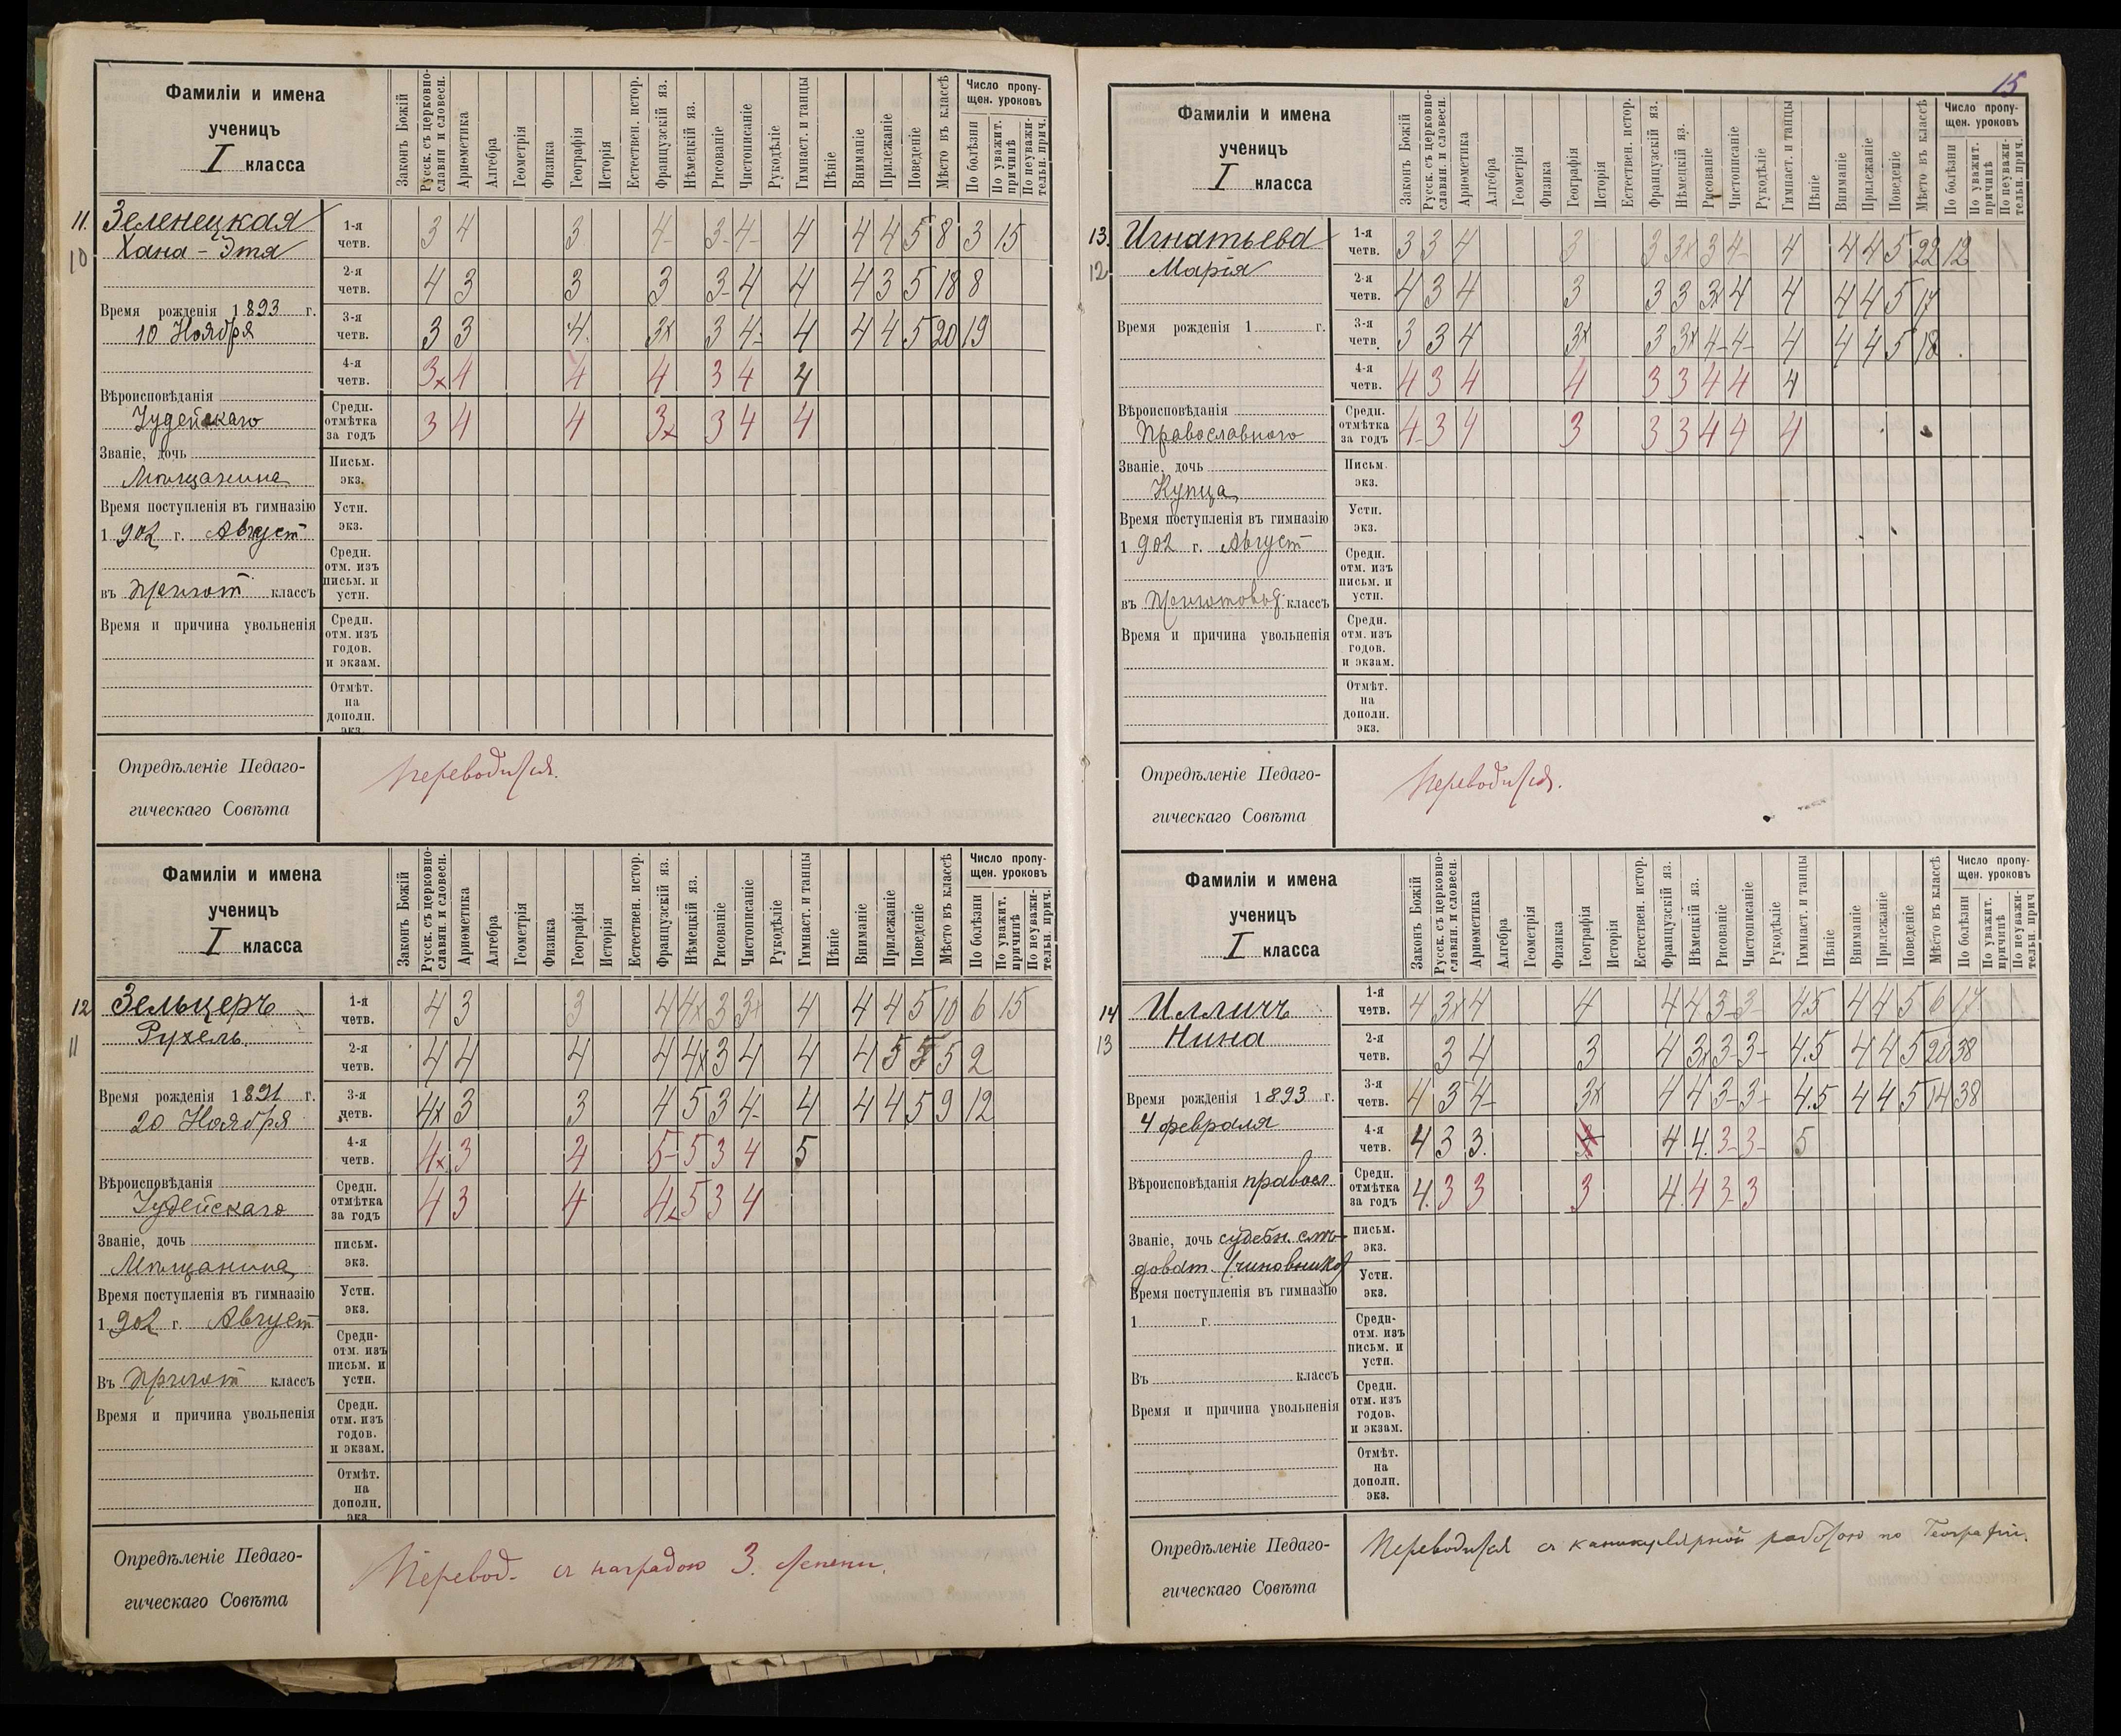 15
Фамиліи и имена
ученицъ
I класса
Законъ Божій
Русск. съ церковно-
славян. и словесн.
Ариѳметика
Алгебра
Геометрія
Физика
Географія
Исторія
Естествен. истор.
Французскій яз.
Нѣмецкій яз.
Рисованіе
Чистописаніе
Рукодѣліе
Гимнаст. и танцы
Пѣніе
Вниманіе
Прилежаніе
Поведеніе
Мѣсто въ классѣ
Число пропу-
щен. уроковъ
По болѣзни
По уважит.
причинѣ
По неуважи-
тельн. прич.
11. Зеленецкая
10 Хана-Этя
Время рожденія 1893 г.
10 Ноября
Вѣроисповѣданія
Іудейскаго
Званіе, дочь
Мѣщанина
Время поступленія въ гимназію
1902 г. Август
въ пригот классъ
Время и причина увольненія
1-я четв. 3 4 3 4- 3- 4- 4 4 4 5 8 3 15
2-я четв. 4 3 3 3 3- 4 4 4 3 5 18 8
3-я четв. 3 3 4. 3x 3 4- 4 4 4 5 20 19
4-я четв. 3x 4 4 4 3 4 4
Средн. отмѣтка за годъ 3 4 4 3x 3 4 4
Письм.
экз.
Устн.
экз.
Средн.
отм. изъ
письм. и
устн.
Средн.
отм. изъ
годов.
и экзам.
Отмѣт.
на
дополн.
экз.
Опредѣленіе Педаго-
гическаго Совѣта
Переводится.
Фамиліи и имена
ученицъ
I класса
Законъ Божій
Русск. съ церковно-
славян. и словесн.
Ариѳметика
Алгебра
Геометрія
Физика
Географія
Исторія
Естествен. истор.
Французскій яз.
Нѣмецкій яз.
Рисованіе
Чистописаніе
Рукодѣліе
Гимнаст. и танцы
Пѣніе
Вниманіе
Прилежаніе
Поведеніе
Мѣсто въ классѣ
Число пропу-
щен. уроковъ
По болѣзни
По уважит.
причинѣ
По неуважи-
тельн. прич.
12 Зельцеръ
11 Рухель.
Время рожденія 1891 г.
20 Ноября
Вѣроисповѣданія
Іудейскаго
Званіе, дочь
Мѣщанина
Время поступленія въ гимназію
1902 г Август
Въ пригот классъ
Время и причина увольненія
1-я четв. 4 3 3 4 4x 3 3x 4 4 4 5 10 6 15
2-я четв. 4 4 4 4 4x 3 4 4 4 5 5 5 2
3-я четв. 4x 3 3 4 5 3 4- 4 4 4 5 9 12
4-я четв. 4x 3 4 5- 5 3 4 5
Средн. отмѣтка за годъ 4 3 4 4x 5 3 4
письм.
экз.
Устн.
экз.
Средн-
отм. изъ
письм. и
устн.
Средн.
отм. изъ
годов.
и экзам.
Отмѣт.
на
дополн.
экз
Опредѣленіе Педаго-
гическаго Совѣта
Перевод- съ наградою 3. степени.
Фамиліи и имена
ученицъ
I класса
Законъ Божій
Русск. съ церковно-
славян. и словесн.
Ариѳметика
Алгебра
Геометрія
Физика
Географія
Исторія
Естествен. истор.
Французскій яз.
Нѣмецкій яз.
Рисованіе
Чистописаніе
Рукодѣліе
Гимнаст. и танцы
Пѣніе
Вниманіе
Прилежаніе
Поведеніе
Мѣсто въ классѣ
Число пропу-
щен. уроковъ
По болѣзни
По уважит.
причинѣ
По неуважи-
тельн. прич.
13. Игнатьева
12 Марія
Время рожденія 1 г.
Вѣроисповѣданія
Православного
Званіе, дочь
Купца
Время поступленія въ гимназію
1902 г. Август
въ приготовов. классъ
Время и причина увольненія
1-я четв. 3 3 4 3 3 3x 3 4- 4 4 4 5 22 12
2-я четв. 4 3 4 3 3 3 3x 4 4 4 4 5 17
3-я четв. 3 3 4 3x 3 3x 4- 4- 4 4 4 5 18
4-я четв. 4 3 4 4 3 3 4 4 4
Средн. отмѣтка за годъ 4- 3 4 3 3 3 4 4 4
Письм.
экз.
Устн.
экз.
Средн.
отм. изъ
письм. и
устн.
Средн.
отм. изъ
годов.
и экзам.
Отмѣт.
на
дополн.
экз.
Опредѣленіе Педаго-
гическаго Совѣта
Переводится.
Фамиліи и имена
ученицъ
I класса
Законъ Божій
Русск. съ церковно-
славян. и словесн.
Ариѳметика
Алгебра
Геометрія
Физика
Географія
Исторія
Естествен. истор.
Французскій яз.
Нѣмецкій яз.
Рисованіе
Чистописаніе
Рукодѣліе
Гимнаст. и танцы
Пѣніе
Вниманіе
Прилежаніе
Поведеніе
Мѣсто въ классѣ
Число пропу-
щен. уроковъ
По болѣзни
По уважит.
причинѣ
По неуважи-
тельн. прич
14 Илличъ
13 Нина
Время рожденія 1893 г.
4 февраля
Вѣроисповѣданія правосл
Званіе, дочь судебн. слѣ-
доват. (чиновника)
Время поступленія въ гимназію
1 г.
Въ классъ
Время и причина увольненія
1-я четв. 4 3x 4 4 4 4 3- 3- 4.5 4 4 5 6 17
2-я четв. 3 4 3 4 3x 3- 3- 4.5 4 4 5 20 38
3-я четв. 4 3 4- 3x 4 4 3- 3- 4.5 4 4 5 14 38
4-я четв. 4 3 3. 4 4. 3- 3- 5
Средн. отмѣтка за годъ 4. 3 3 3 4. 4 3- 3
письм.
экз.
Устн.
экз.
Средн-
отм. изъ
письм. и
устн.
Средн.
отм. изъ
годов.
и экзам.
Отмѣт.
на
дополн.
экз.
Опредѣленіе Педаго-
гическаго Совѣта
Переводится съ каникулярной работою по Географіи.